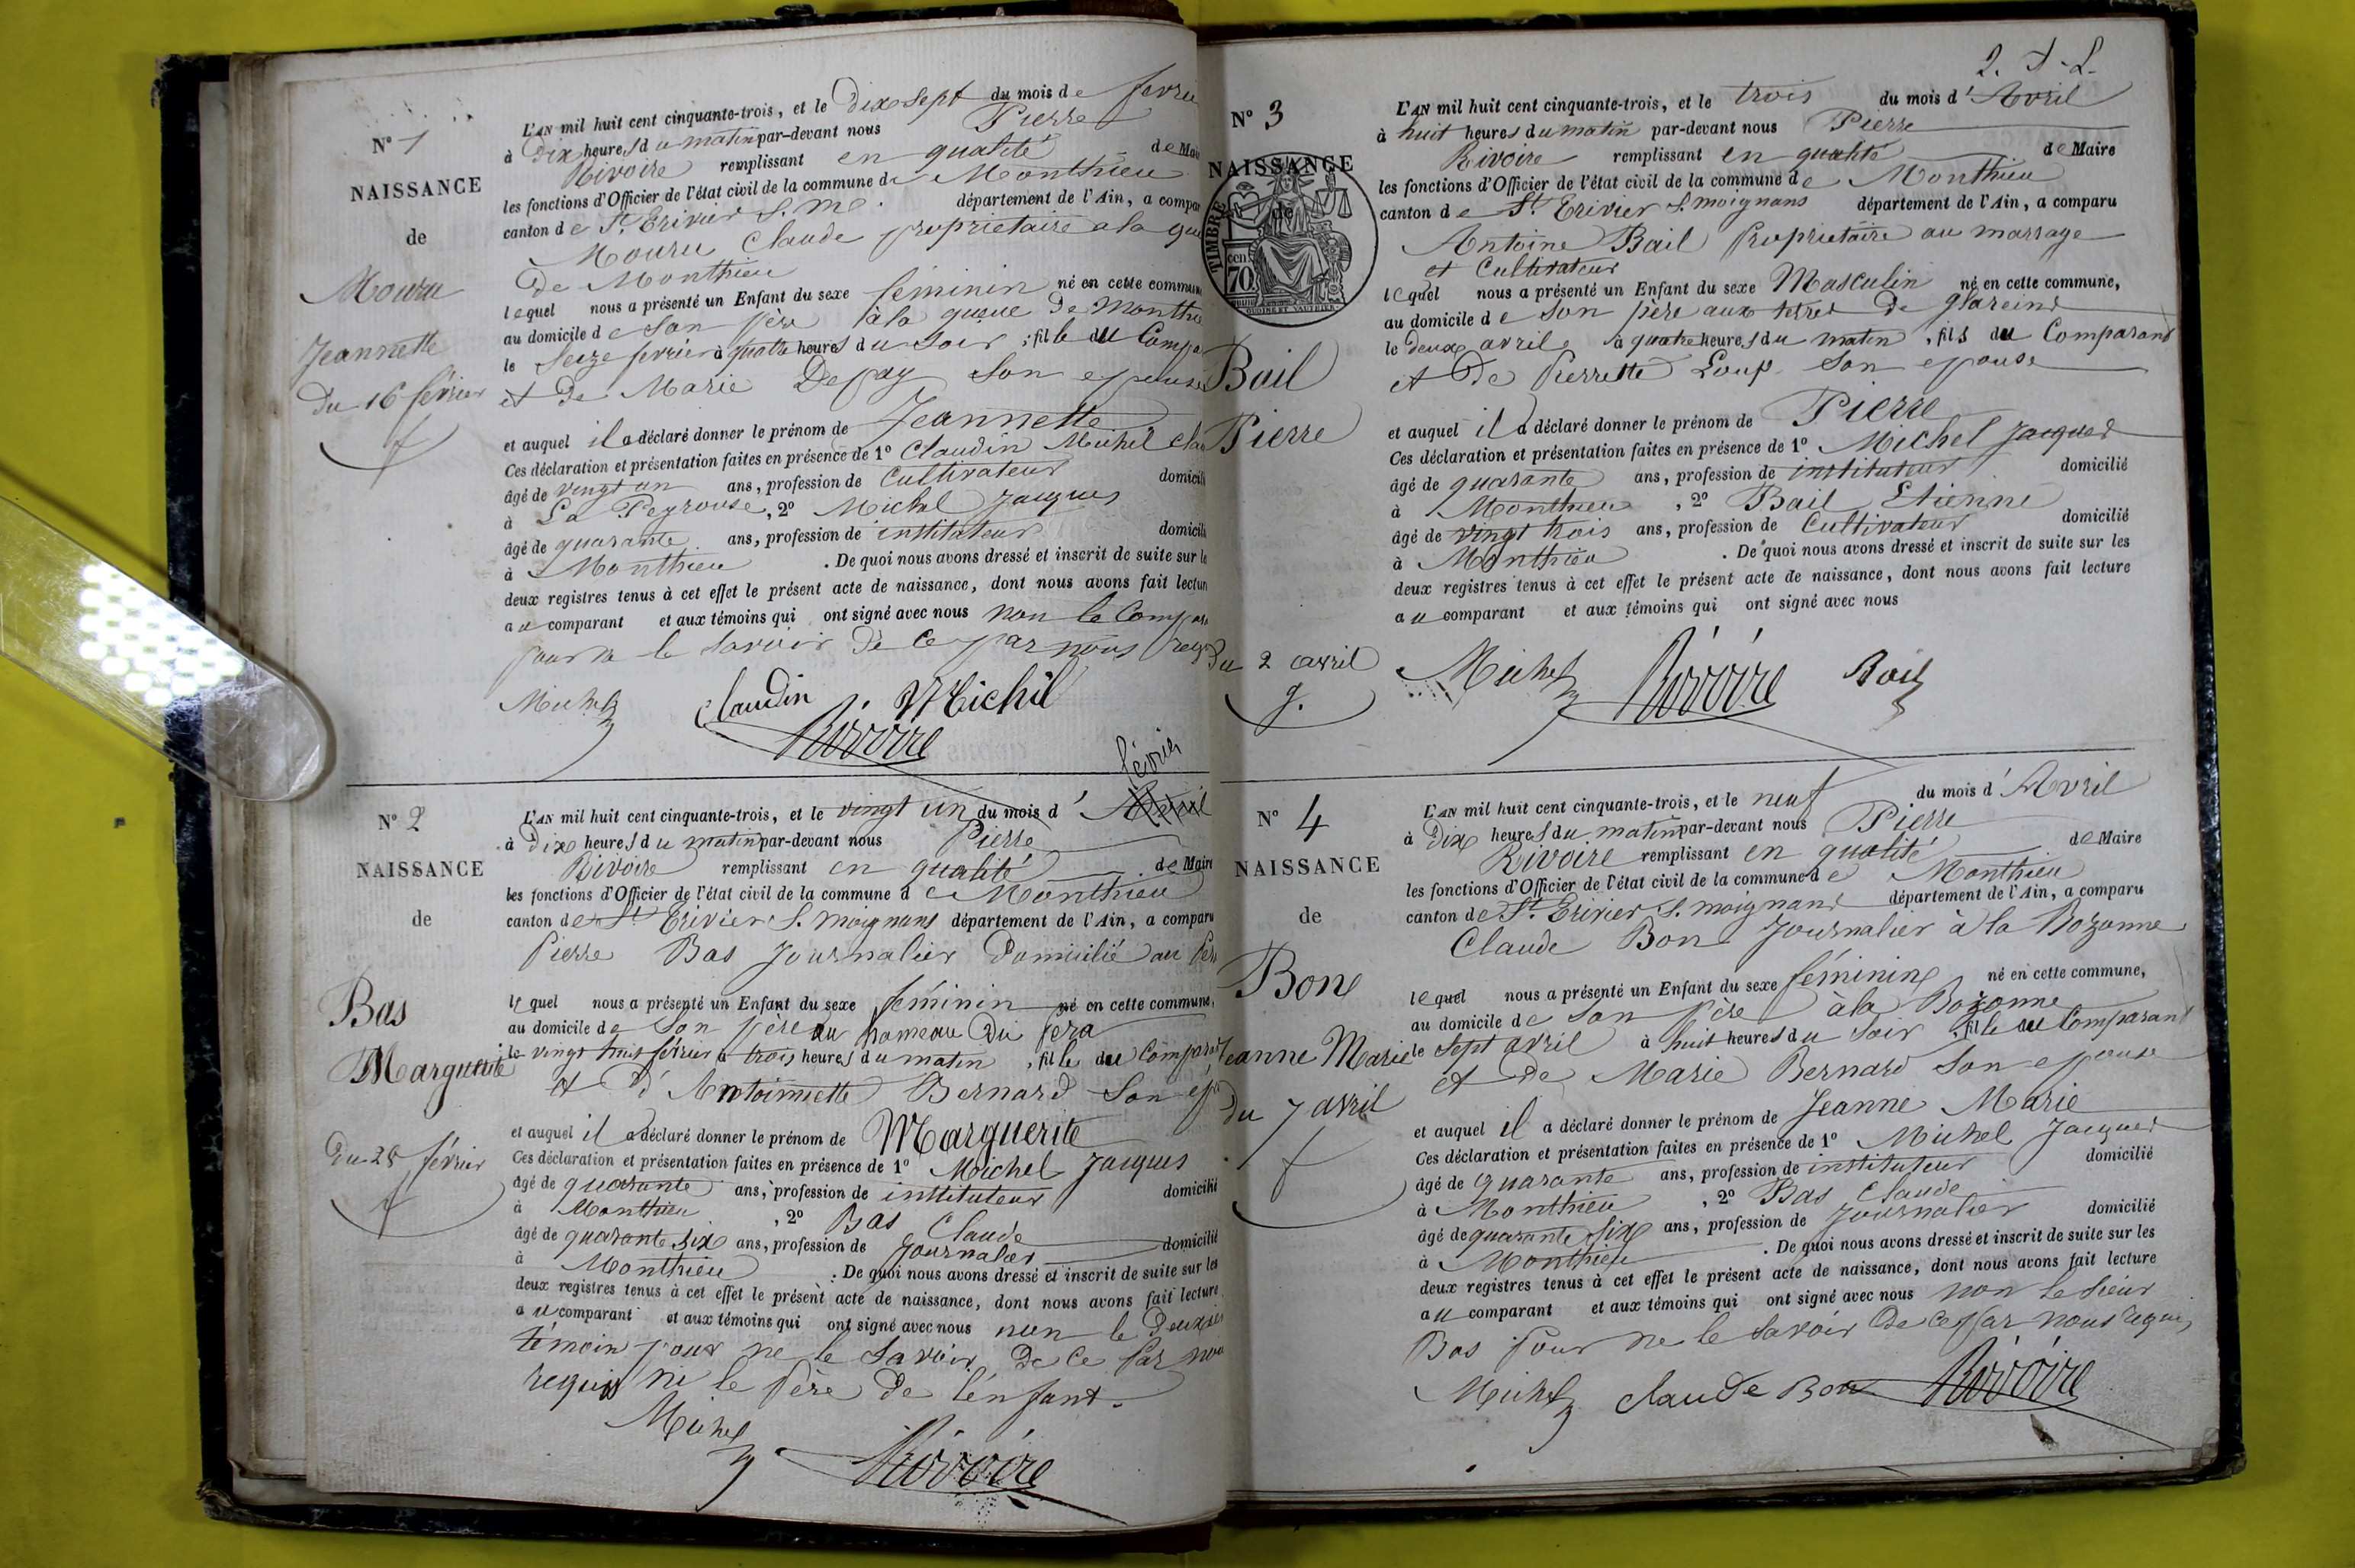 N° 1
NAISSANCE
de
Mouru
Jeannette
du 16 février
L'AN mil huit cent cinquante-trois, et le Dix sept du mois de
à Dix heures du matin par-devant nous Pierre
Rivoire remplissant en qualité de
les fonctions d'Officier de l'état civil de la commune de Monthieu
canton de St Trivier S. Mo. département de l'Ain, a
Mouru Claude propriétaire a la
de Monthieu
lequel nous a présenté un Enfant du sexe féminin né en cette
au domicile de son père à la queue de
le seize fevrier à quatre heures du soir, fille du
et de Marie Depay son epouse
et auquel il a déclaré donner le prénom de Jeannette
Ces déclaration et présentation faites en présence de 1° Claudin Michel
âgé de vingt un ans, profession de Cultivateur
à La Peyrouse, 2° Michel Jacques
âgé de quarante ans, profession de instituteur
à Monthieu. De quoi nous avons dressé et inscrit de suite sur
deux registres tenus à cet effet le présent acte de naissance, dont nous avons fait
au comparant et aux témoins qui ont signé avec nous non le
le savoir de ce par nous
Michel Claudin Michel
Rivoire
N° 2
NAISSANCE
de
Bas
Marguerite
du 28 février
février
L'AN mil huit cent cinquante-trois, et le vingt un du mois d' Avril
à Dix heures du matin par-devant nous Pierre
Rivoire remplissant en qualité de Maire
les fonctions d'Officier de l'état civil de la commune de Monthieu
canton de St Trivier S. moignans département de l'Ain, a comparu
Pierre Bas Journalier Domicilié au
lequel nous a présenté un Enfant du sexe féminin né en cette commune,
au domicile de son père au hameau du
le vingt huit février à trois heures du matin, fille du
et d'Antoinette Bernard son
et auquel il a déclaré donner le prénom de Marguerite
Ces déclaration et présentation faites en présence de 1° Michel Jacques
âgé de quarante ans, profession de instituteur domicilié
à Monthieu, 2° Bas Claude
âgé de quarante six ans, profession de Journalier domicilié
à Monthieu. De quoi nous avons dressé et inscrit de suite sur les
deux registres tenus à cet effet le présent acte de naissance, dont nous avons fait lecture
au comparant et aux témoins qui ont signé avec nous non le
témoin pour ne le savoir de ce par
requis ni le père de l'enfant.
Michel
Rivoire
N° 3
NAISSANCE
de
TIMBRE
70 cen
Bail
Pierre
Du 2 avril
L'AN mil huit cent cinquante-trois, et le trois du mois d'Avril
à huit heures du matin par-devant nous Pierre
Rivoire remplissant en qualité de Maire
les fonctions d'Officier de l'état civil de la commune de Monthieu
canton de St Trivier S. moignans département de l'Ain, a comparu
Antoine Bail Propriétaire au massage
et Cultivateur
lequel nous a présenté un Enfant du sexe Masculin né en cette commune,
au domicile de son père aux terres de glareins
le deux avril à quatre heures du matin, fils du Comparant
et de Pierrette Loup son epouse
et auquel il a déclaré donner le prénom de Pierre
Ces déclaration et présentation faites en présence de 1° Michel Jacques
âgé de quarante ans, profession de instituteur domicilié
à Monthieu, 2° Bail Etienne
âgé de vingt trois ans, profession de Cultivateur domicilié
à Monthieu. De quoi nous avons dressé et inscrit de suite sur les
deux registres tenus à cet effet le présent acte de naissance, dont nous avons fait lecture
au comparant et aux témoins qui ont signé avec nous
Michel Rivoire Bail
N° 4
NAISSANCE
de
Bon
Jeanne Marie
du 7 avril
L'AN mil huit cent cinquante-trois, et le neuf du mois d'Avril
à Dix heures du matin par-devant nous Pierre
Rivoire remplissant en qualité de Maire
les fonctions d'Officier de l'état civil de la commune de Monthieu
canton de St Trivier S. moignans département de l'Ain, a comparu
Claude Bon Journalier à la Bozonne
lequel nous a présenté un Enfant du sexe féminin né en cette commune,
au domicile de son père à la Bozonne
le sept avril à huit heures du soir, fille du Comparant
et de Marie Bernard son epouse
et auquel il a déclaré donner le prénom de Jeanne Marie
Ces déclaration et présentation faites en présence de 1° Michel Jacques
âgé de quarante ans, profession de instituteur domicilié
à Monthieu, 2° Bas Claude
âgé de quarante six ans, profession de Journalier domicilié
à Monthieu. De quoi nous avons dressé et inscrit de suite sur les
deux registres tenus à cet effet le présent acte de naissance, dont nous avons fait lecture
au comparant et aux témoins qui ont signé avec nous non le sieur
Bas pour ne le savoir de ce par nous requis
Michel Claude Bon Rivoire